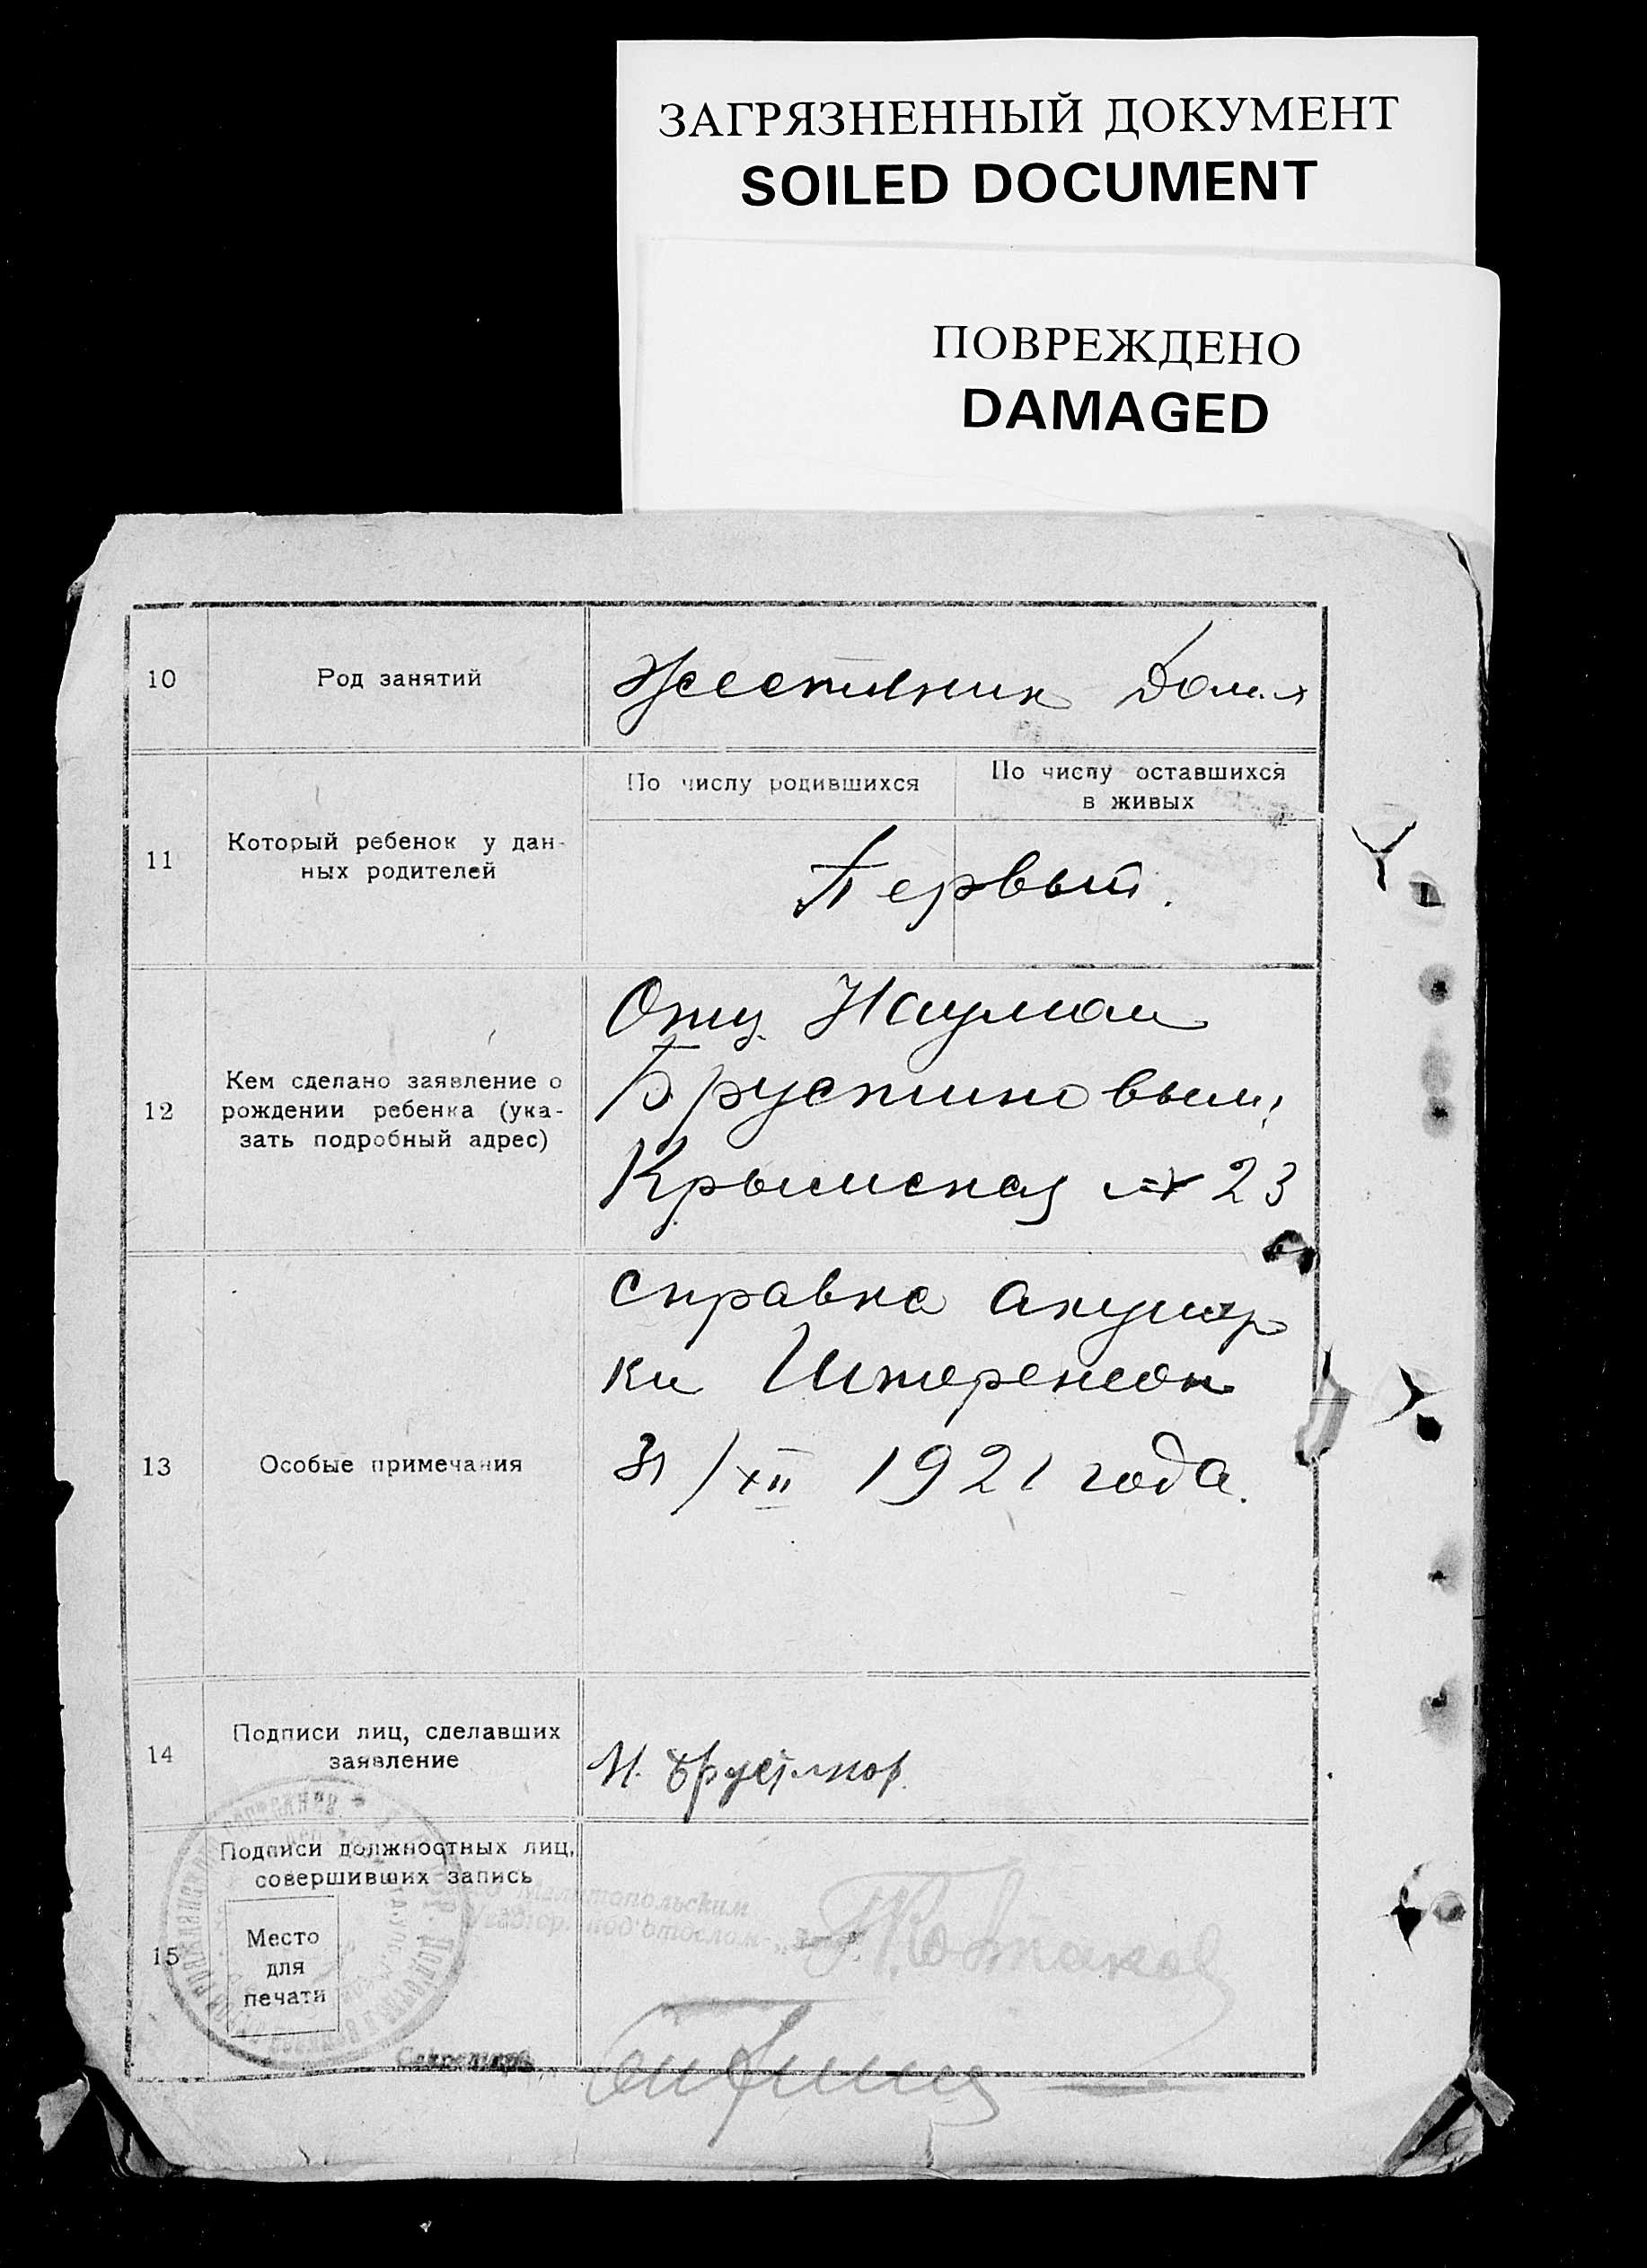 ЗАГРЯЗНЕННЫЙ ДОКУМЕНТ
SOILED DOCUMENT
ПОВРЕЖДЕНО
DAMAGED
10
Род занятий
Жестяник
Дома
11
Который ребенок у дан-
ных родителей
По числу родившихся
По числу оставшихся
в живых
Первый.
12
Кем сделано заявление о
рождении ребенка (ука-
зать подробный адрес)
Отц. Наумом
Брустиновым,
Крымская № 23
13
Особые примечания
Справка акушер
ки
31/XII 1921 года.
14
Подписи лиц, сделавших
заявление
Н. Брустинов
15
Подписи должностных лиц,
совершивших запись
Место
для
печати
Мелитопольским
под'отделом
Секретарь